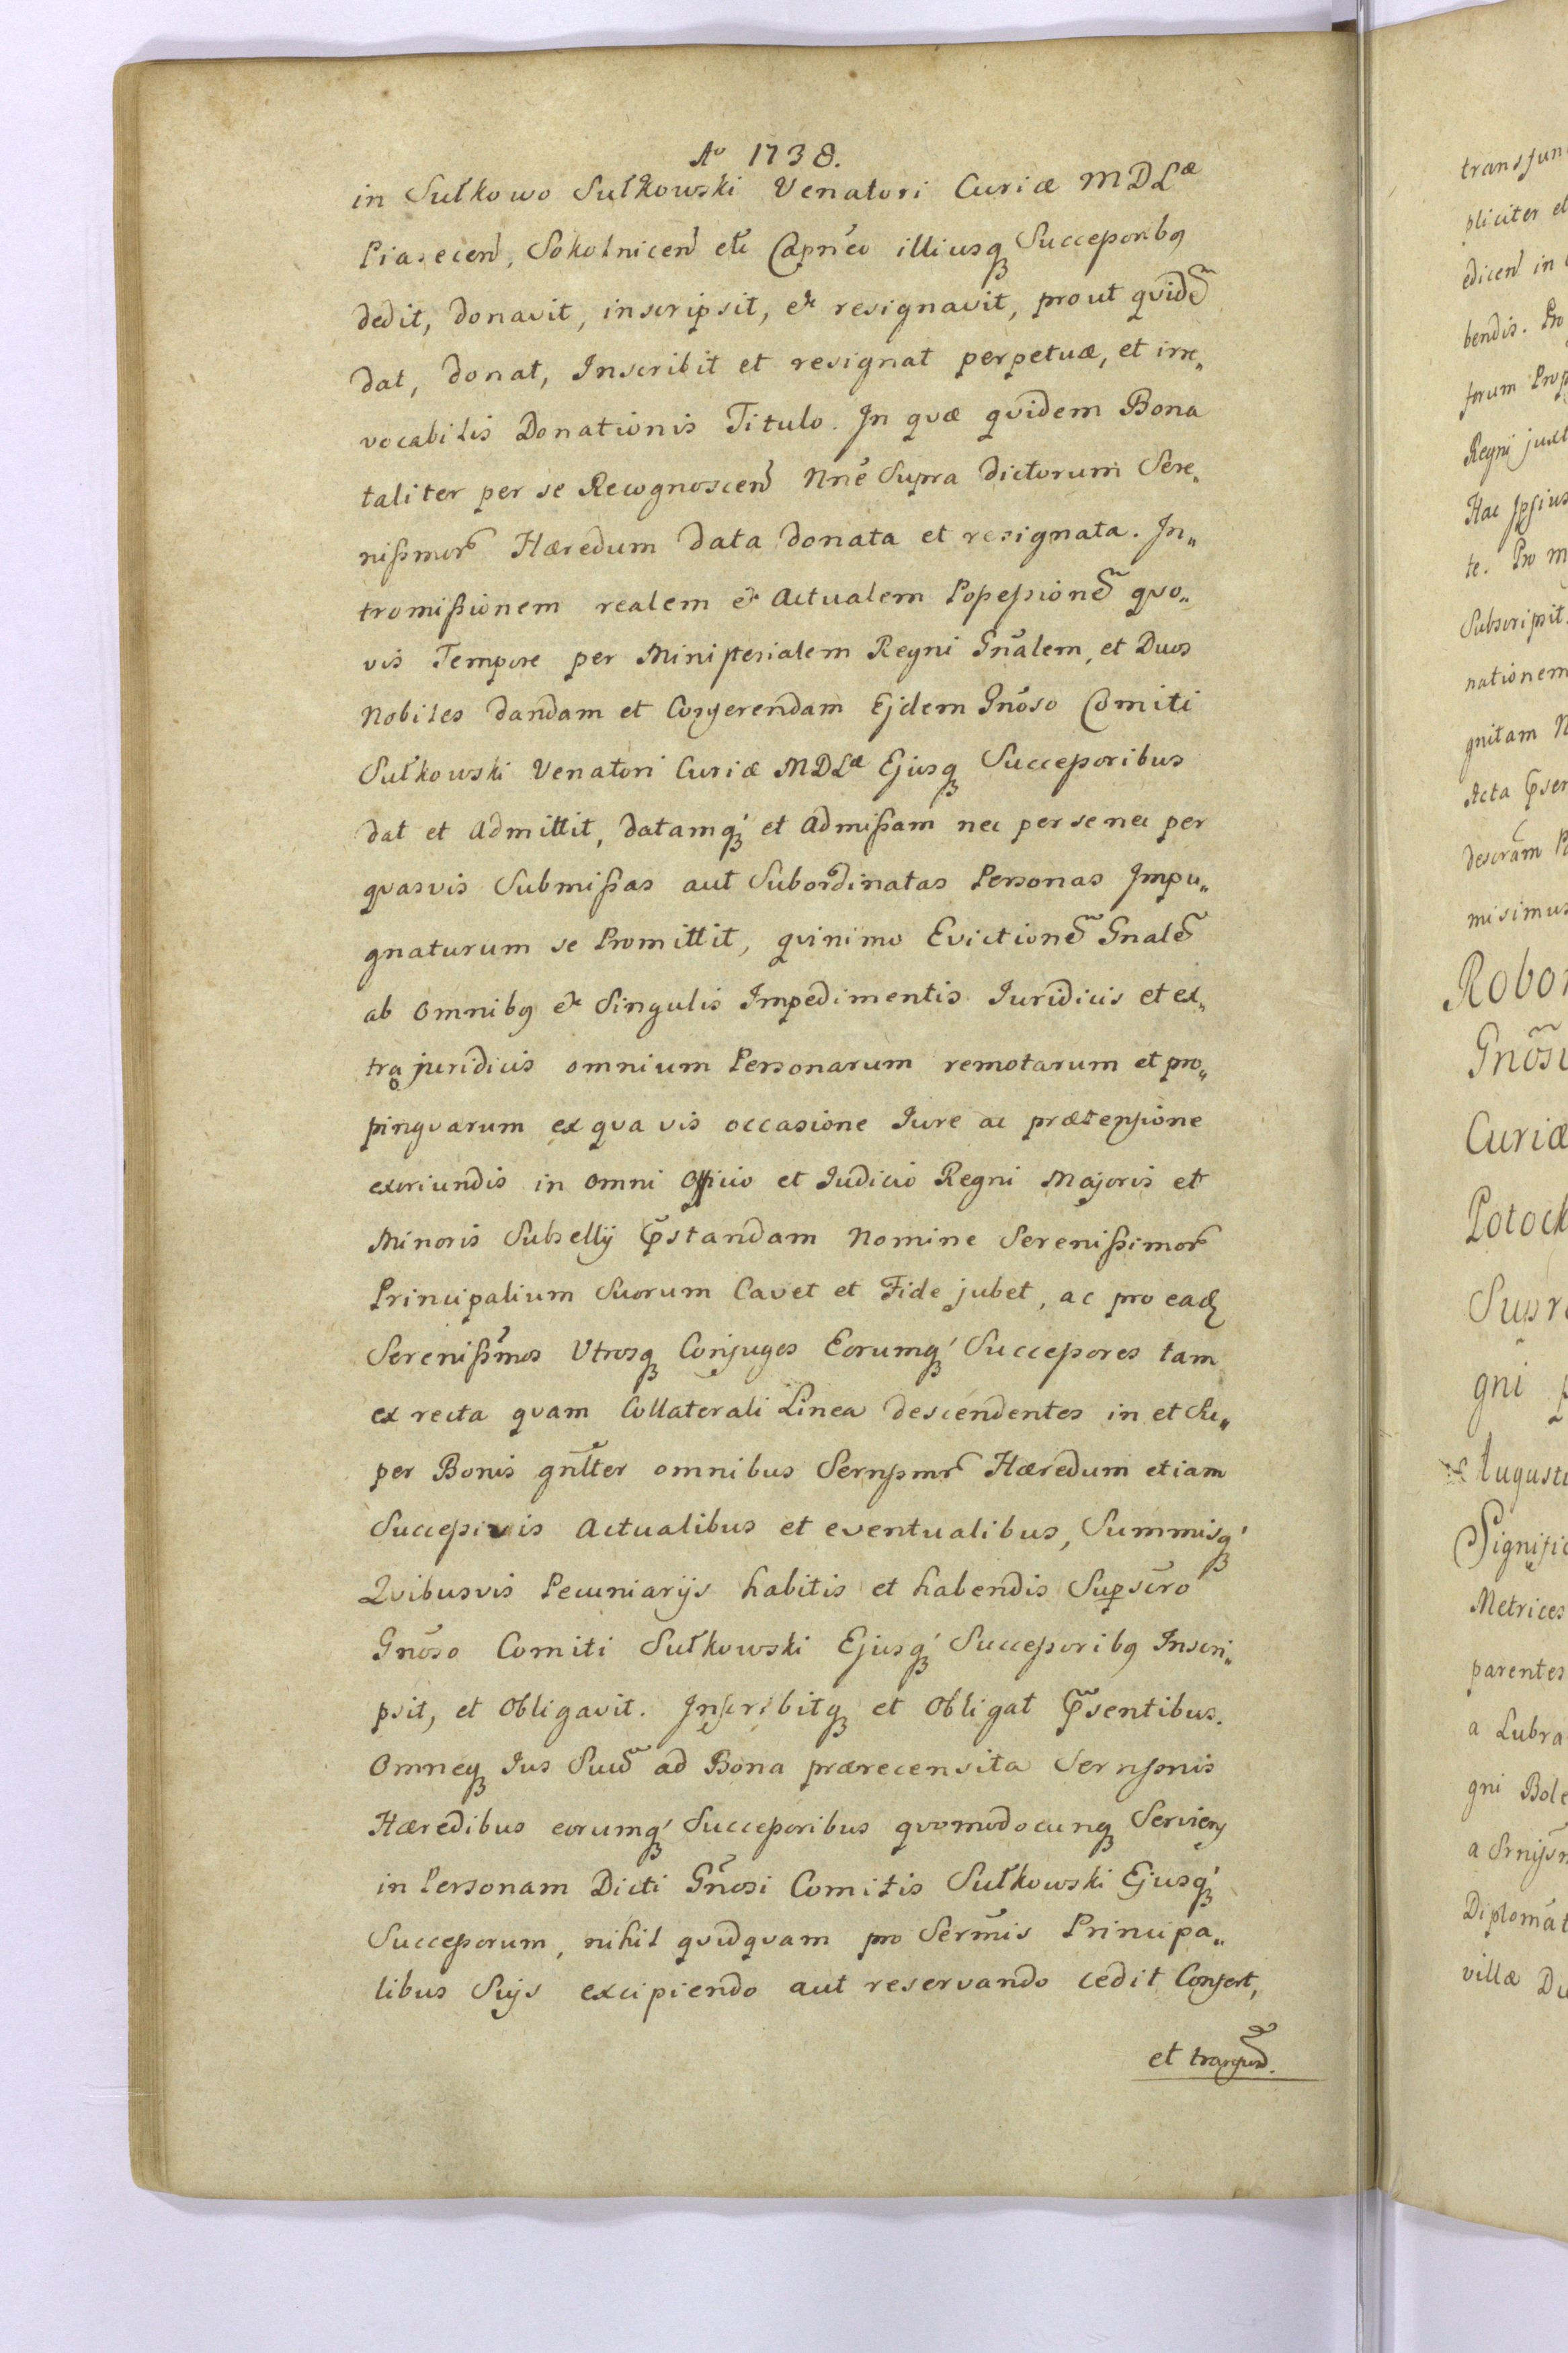 Ao 1738.
in Sułkowo Sułkowski Venatori Curiæ MDLæ
Piasecen, Sokolnicen etc Capneo illiusq Successoribq
dedit, donavit, inscripsit, et resignavit, prout qvidē
dat, donat, Inscribit et resignat perpetuæ, et irre„
vocabilis Donationis Titulo. In qvæ qvidem Bona
taliter per se Recognoscen Nne Supra dictorum Sere„
nißmor Hæredum data donata et resignata. In„
tromißionem realem et Actualem Possessionē qvo„
vis Tempore per Ministerialem Regni Gnālem, et Duos
Nobiles dandam et Conferendam Ejdem Gnōso Comiti
Sułkowski Venatori Curiæ MDLæ Ejusq Successoribus
dat et Admittit, datamq́ et Admißam nec per se nec per
qvasvis Submißas aut Subordinatas Personas Impu„
gnaturum se Promittit, qvinimo Evictionē Gnalē
ab omnibq et Singulis Impedimentis Iuridicis et ex„
tra juridicis omnium Personarum remotarum et pro„
pinqvarum ex qva vis occasione Iure ac prætensione
exoriundis in omni Officio et Iudicio Regni Majoris et
Minoris Subsellij Pstandam Nomine Serenißimor
Principalium Suorum Cavet et Fide jubet, ac pro eadē
Sereniß̄mos Utrosq Conjuges Eorumq́ Successores tam
ex recta qvam Collaterali Linea descendentes in et Su„
per Bonis gnlter omnibus Sernssmr Hæredum etiam
Successivis Actualibus et eventualibus, Summisq́
Qvibusvis Pecuniarijs habitis et habendis Supscro
Gnōso Comiti Sułkowski Ejusq́ Successoribq Inscri„
psit, et Obligavit. Inscribitq et Obligat Psentibus.
Omneq Ius Suū ad Bona prærecensita Sernssmis
Hæredibus eorumq́ Successoribus qvomodocunq Servien
in Personam Dicti Gnōsi Comitis Sułkowski Ejusq́
Successorum, nihil qvidqvam pro Sermis Principa„
libus Suis excipiendo aut reservando cedit Confert,
et transfund.
transfun
pliciter et
edicen in
bendis. Pro
forum Prop
Regni juxt
Hac Ipsius
te. Pro m
Subscripsit.
nationem
gnitam N
Acta Pser
descrām P
misimus
Robor
Gnōsi
Curiæ
Potock
Susr
gni p
Augusti
Signific
Metrices
parentes
a Lubra
gni Bole
a Srnissm
Diplomāt
villæ Du